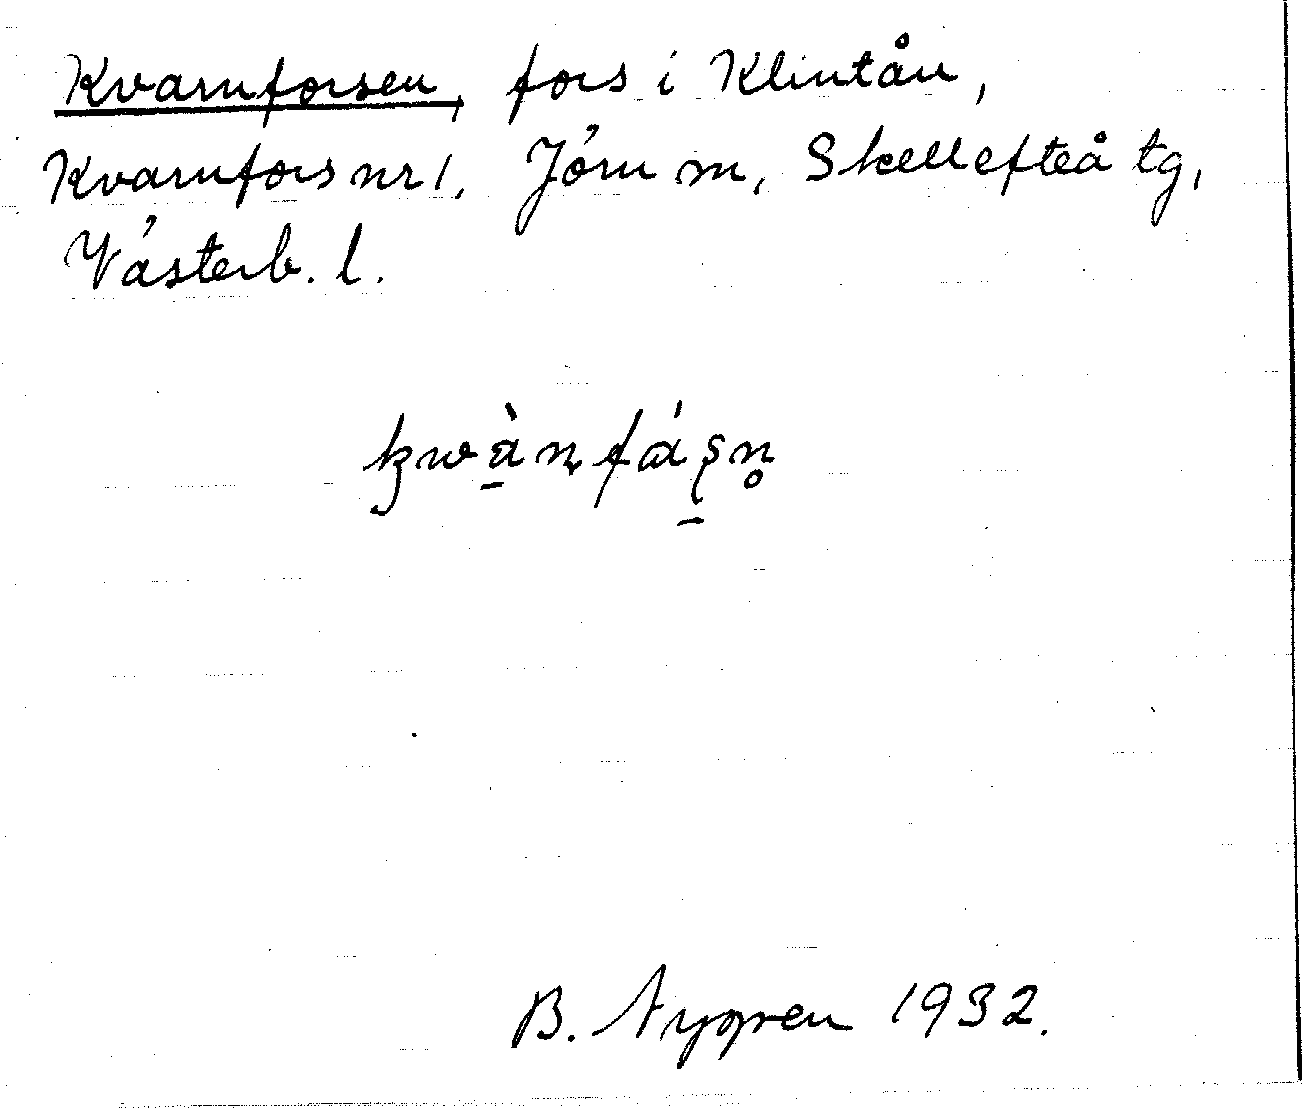 Kvarnforsen, fors i Klintån,
Kvarnfors nr 1. Jörn sn, Skellefteå tg,
Västerb. l.
B. Nygren 1932.